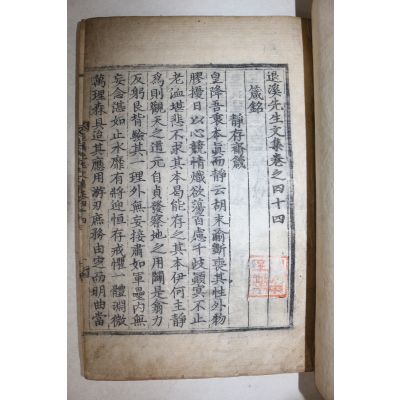 退溪先生文集卷之四十四
箴銘
靜存齋箴
皇降吾秉本眞而靜云胡末渝斲喪其性外物
膠擾日以心競情熾欲蕩百慮千歧顚冥不止
老洫堪悲不求其本曷能存之其本伊何主靜
爲則觀天之道元自貞發察地之用闢是翕力
反躬艮背驗其一理外無妄接肅如軍壘內無
妄念湛如止水靡有將迎恒存戒懼一體淵微
萬理森具迨其應用游刃庶務由而明曲當